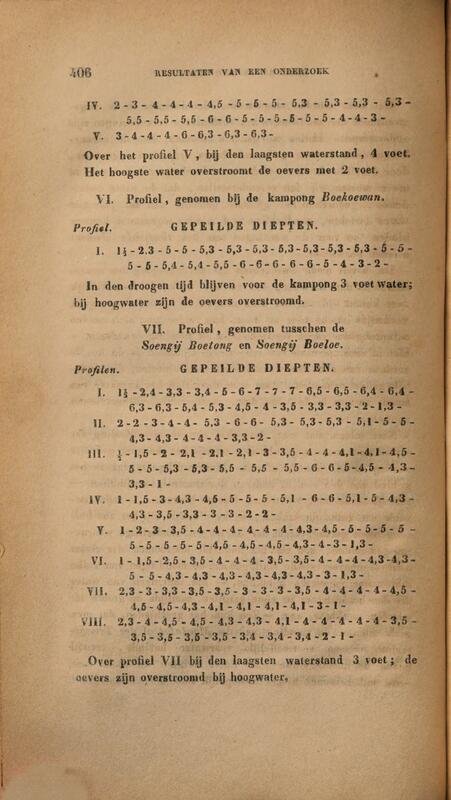 406 RESULTATEN VAN EEN ONDERZOEK
IV. 2 - 3 - 4 - 4 - 4 - 4,5 - 5 - 5 - 5 - 5,3 - 5,3 - 5,3 - 5,3 -
5,5 - 5,5 - 5,5 - 6 - 6 - 5 - 5 - 5 - 5 - 5 - 5 - 4 - 4 - 3 -
V. 3 - 4 - 4 - 4 - 6 - 6,3 - 6,3 - 6,3 -
Over het profiel V, bij den laagsten waterstand, 4 voet.
Het hoogste water overstroomt de oevers met 2 voet.
VI. Profiel, genomen bij de kampong Boekoewan.
Profiel. GEPEILDE DIEPTEN.
I. 1½ - 2.3 - 5 - 5 - 5,3 - 5,3 - 5,3 - 5,3 - 5,3 - 5,3 - 5,3 - 5 - 5 -
5 - 5 - 5,4 - 5,4 - 5,5 - 6 - 6 - 6 - 6 - 6 - 5 - 4 - 3 - 2 -
In den droogen tijd blijven voor de kampong 3 voet water;
bij hoogwater zijn de oevers overstroomd.
VII. Profiel, genomen tusschen de
Soengij Boetong en Soengij Boeloe.
Profilen. GEPEILDE DIEPTEN.
I. 1½ - 2,4 - 3,3 - 3,4 - 5 - 6 - 7 - 7 - 7 - 6,5 - 6,5 - 6,4 - 6,4 -
6,3 - 6,3 - 5,4 - 5,3 - 4,5 - 4 - 3,5 - 3,3 - 3,3 - 2 - 1,3 -
II. 2 - 2 - 3 - 4 - 4 - 5,3 - 6 - 6 - 5,3 - 5,3 - 5,3 - 5,1 - 5 - 5 -
4,3 - 4,3 - 4 - 4 - 4 - 3,3 - 2 -
III. ½ - 1,5 - 2 - 2,1 - 2,1 - 2,1 - 3 - 3,5 - 4 - 4 - 4,1 - 4,1 - 4,5 -
5 - 5 - 5,3 - 5,3 - 5,5 - 5,5 - 5,5 - 6 - 6 - 5 - 4,5 - 4,3 -
3,3 - 1 -
IV. 1 - 1,5 - 3 - 4,3 - 4,5 - 5 - 5 - 5 - 5,1 - 6 - 6 - 5,1 - 5 - 4,3 -
4,3 - 3,5 - 3,3 - 3 - 3 - 2 - 2 -
V. 1 - 2 - 3 - 3,5 - 4 - 4 - 4 - 4 - 4 - 4 - 4,3 - 4,5 - 5 - 5 - 5 - 5 -
5 - 5 - 5 - 5 - 5 - 4,5 - 4,5 - 4,5 - 4,3 - 4 - 3 - 1,3 -
VI. 1 - 1,5 - 2,5 - 3,5 - 4 - 4 - 4 - 3,5 - 3,5 - 4 - 4 - 4 - 4,3 - 4,3 -
5 - 5 - 4,3 - 4,3 - 4,3 - 4,3 - 4,3 - 4,3 - 3 - 1,3 -
VII. 2,3 - 3 - 3,3 - 3,5 - 3,5 - 3 - 3 - 3 - 3,5 - 4 - 4 - 4 - 4 - 4,5 -
4,5 - 4,5 - 4,3 - 4,1 - 4,1 - 4,1 - 4,1 - 3 - 1 -
VIII. 2,3 - 4 - 4,5 - 4,5 - 4,3 - 4,3 - 4,1 - 4 - 4 - 4 - 4 - 4 - 3,5 -
3,5 - 3,5 - 3,5 - 3,5 - 3,4 - 3,4 - 3,4 - 2 - 1 -
Over profiel VII bij den laagsten waterstand 3 voet; de
oevers zijn overstroomd bij hoogwater.